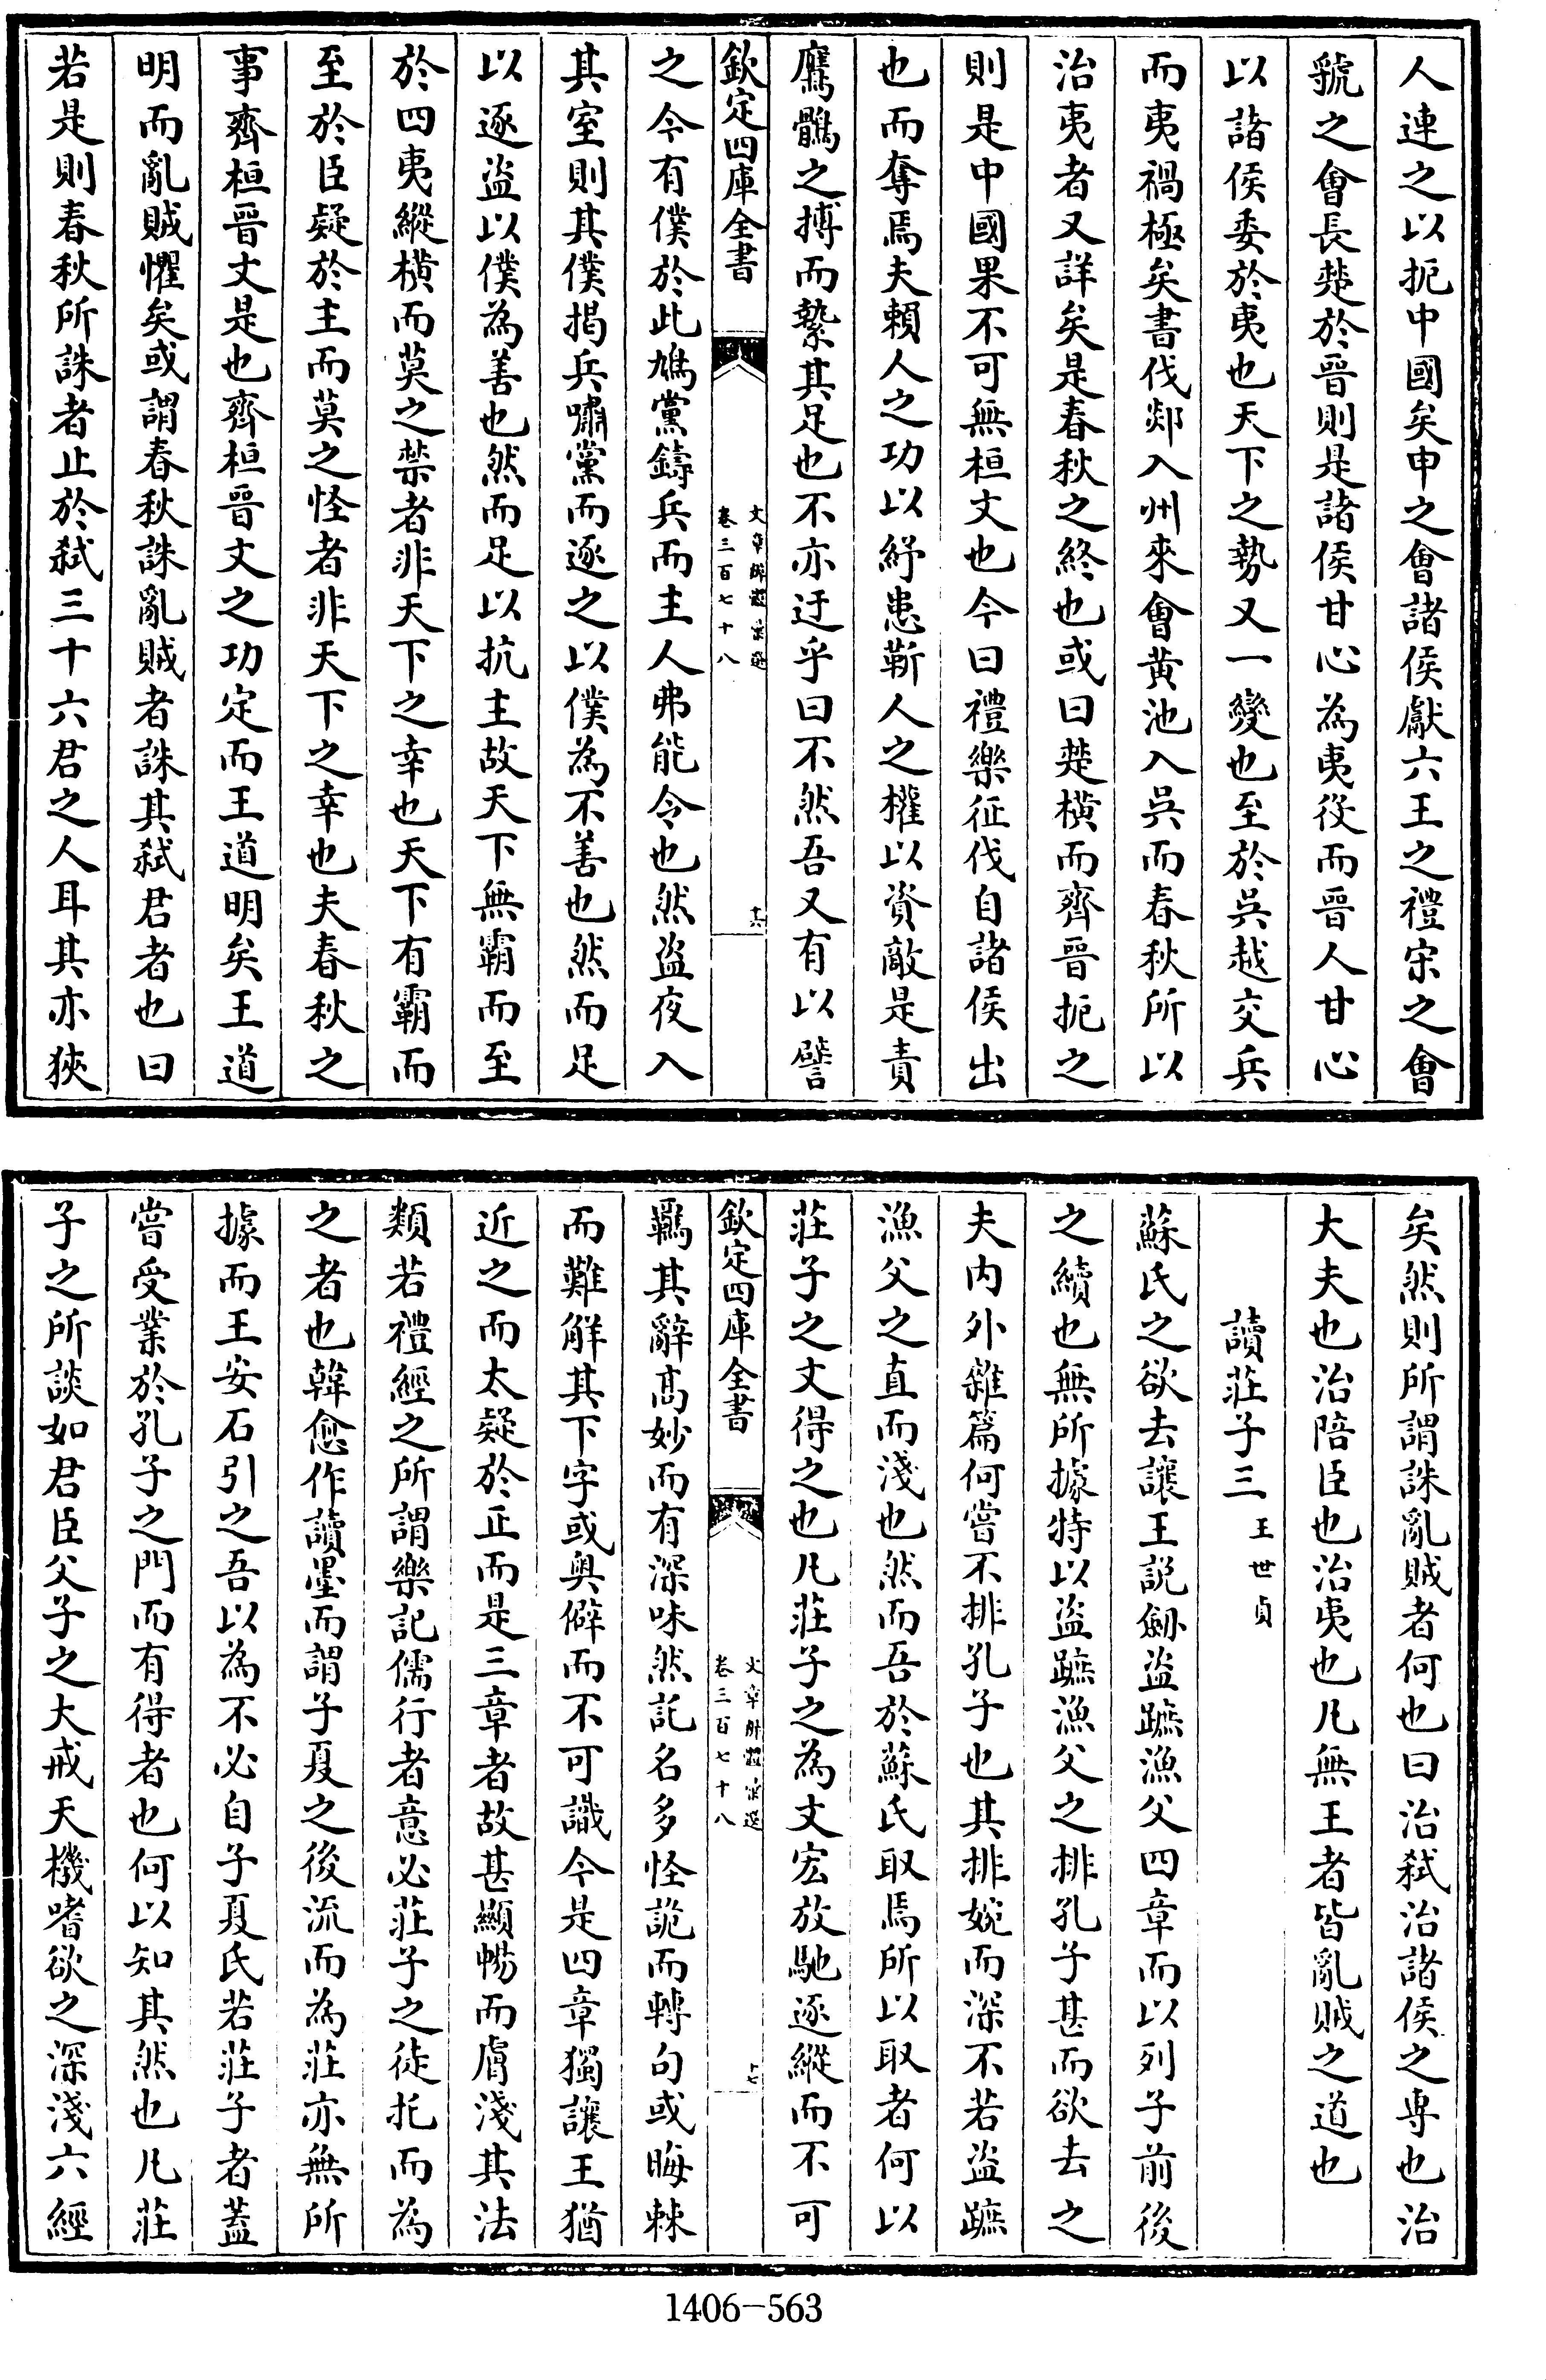 人連之以扼中國矣申之會諸侯獻六王之禮宋之會
虢之會長楚於晉則是諸侯甘心為夷役而晉人甘心
以諸侯委於夷也天下之勢又一變也至於吳越交兵
而夷禍極矣書伐郯入州來會黄池入吳而春秋所以
治夷者又詳矣是春秋之終也或曰楚橫而齊晉扼之
則是中國果不可無桓文也今曰禮樂征伐自諸侯出
也而奪焉夫賴人之功以紓患蘄人之權以資敵是責
鷹鸇之搏而縶其足也不亦迂乎曰不然吾又有以譬
欽定四庫全書
文章辨體彚選
卷三百七十八
十六
之今有僕於此鳩黨鑄兵而主人弗能令也然盜夜入
其室則其僕揭兵嘯黨而逐之以僕為不善也然而足
以逐盜以僕為善也然而足以抗主故天下無霸而至
於四夷縱橫而莫之禁者非天下之幸也天下有霸而
至於臣疑於主而莫之怪者非天下之幸也夫春秋之
事齊桓晉文是也齊桓晉文之功定而王道明矣王道
明而亂賊懼矣或謂春秋誅亂賊者誅其弑君者也曰
若是則春秋所誅者止於弑三十六君之人耳其亦狹
矣然則所謂誅亂賊者何也曰治弑治諸侯之專也治
大夫也治陪臣也治夷也凡無王者皆亂賊之道也
讀莊子三 王世貞
蘇氏之欲去讓王說劒盜蹠漁父四章而以列子前後
之續也無所據特以盜蹠漁父之排孔子甚而欲去之
夫内外雜篇何嘗不排孔子也其排婉而深不若盜蹠
漁父之直而淺也然而吾於蘇氏取焉所以取者何以
莊子之文得之也凡莊子之為文宏放馳逐縱而不可
欽定四庫全書
文章辨體彚選
卷三百七十八
十七
羈其辭高妙而有深味然託名多怪詭而轉句或晦棘
而難解其下字或奥僻而不可識今是四章獨讓王猶
近之而太疑於正而是三章者故甚顯暢而膚淺其法
類若禮經之所謂樂記儒行者意必莊子之徒托而為
之者也韓愈作讀墨而謂子夏之後流而為莊亦無所
據而王安石引之吾以為不必自子夏氏若莊子者蓋
嘗受業於孔子之門而有得者也何以知其然也凡莊
子之所談如君臣父子之大戒天機嗜欲之深淺六經
1406-563